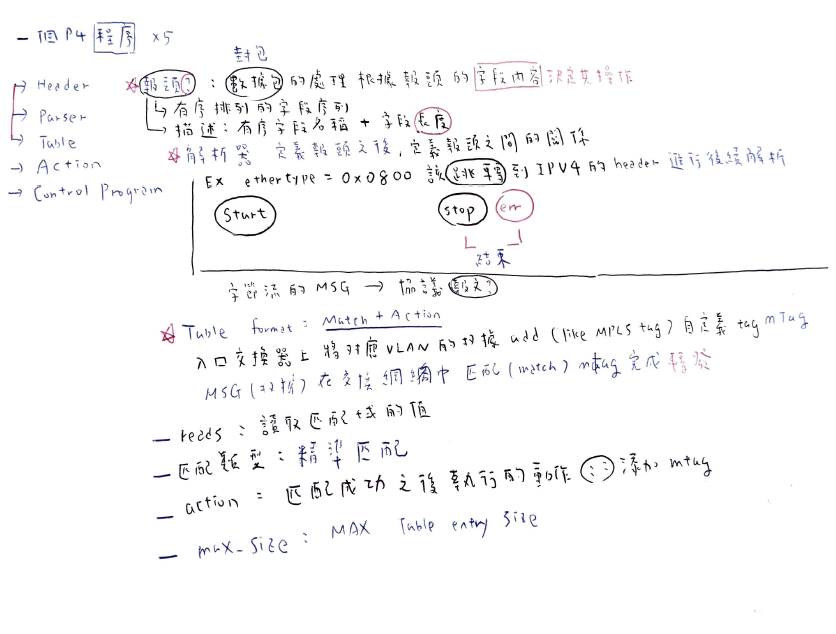 一個P4 程序 x5
封包
Header
Parser
Table
Action
Control Program
報頭? : 數據包的處理根據報頭的字段內容決定其操作
有序排列的字段序列
描述: 有序字段名稱 + 字段長度
解析器 定義報頭之後, 定義報頭之間的關係
Ex ethertype = 0x0800 該跳轉到 IPV4 的 header 進行後續解析
Start stop err
結束
字節流的 MSG → 協議報文?
Table format: Match + Action
入口交換器上將對應VLAN的數據 add (like MPLS tag) 自定義 tag mTag
MSG (数據) 在交換網絡中 匹配 (match) mtag 完成轉發
reads : 讀取匹配域的值
匹配類型 : 精準匹配
action = 匹配成功之後執行的動作 添加 mtag
max_size : MAX Table entry size